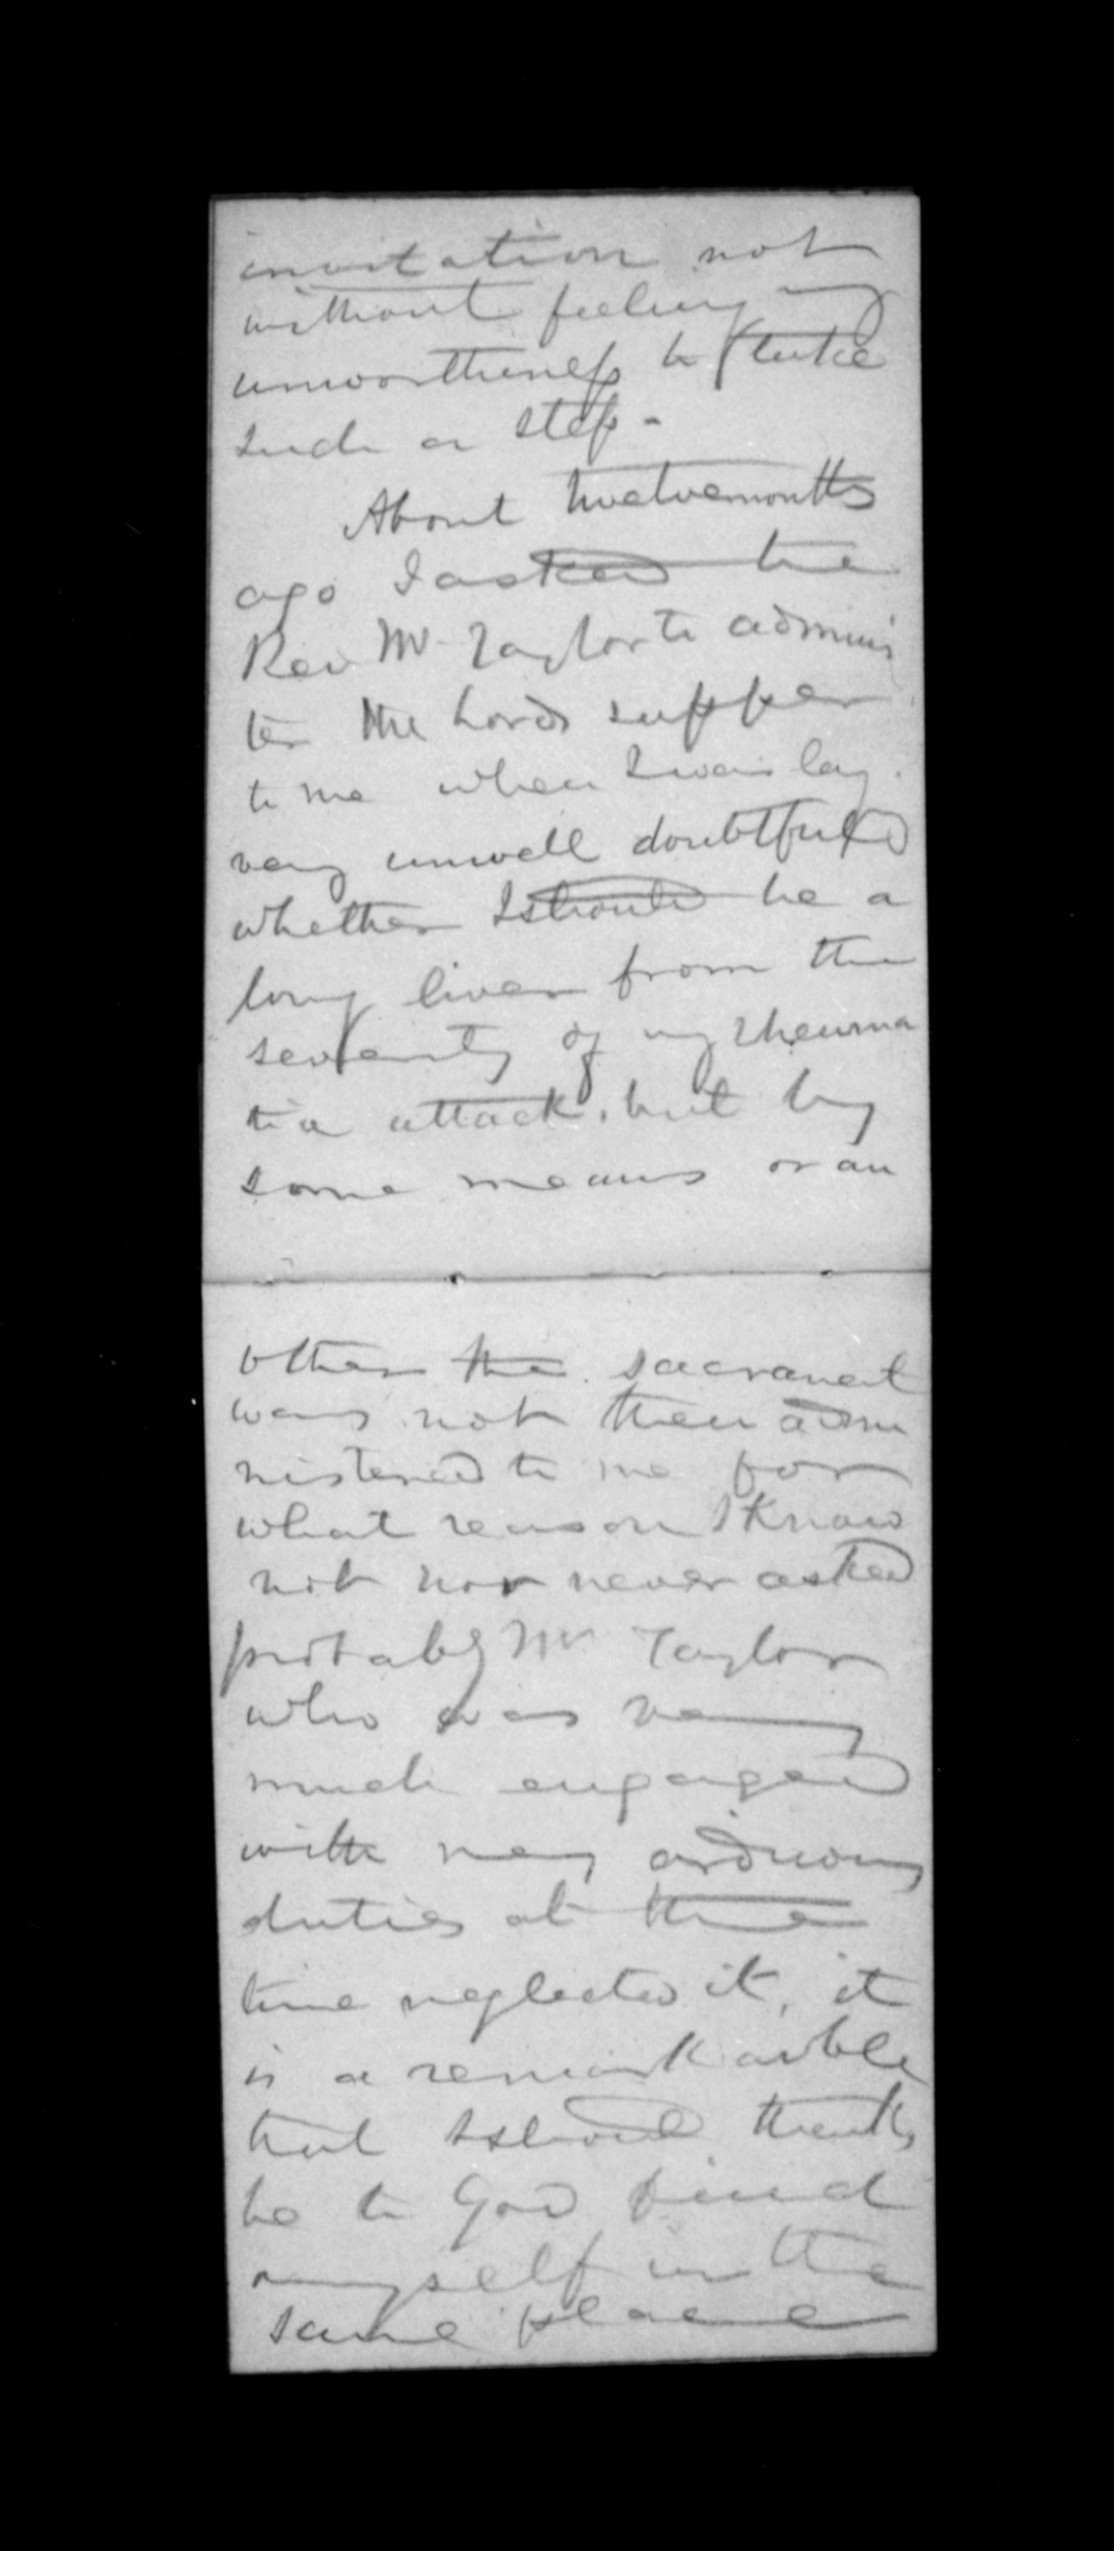 invitation not
without feeling my
unworthiness to take
such a step -
About twelvemonths
ago I asked the
Rev Mr Taylor to adminis
ter the Lords supper
to me when I was lay.
very unwell doubtful
whether I should be a
long liver from the
severity of my rheuma
tic attack, but by
some means or an
other the sacrament
was not then admi
nistered to me for
what reason I know
not nor never asked
probably Mr Taylor
who was very
much engaged
with very arduous
duties at the
time neglected it, it
is a remarkable
that I should thanks
be to God find
myself in the
same place